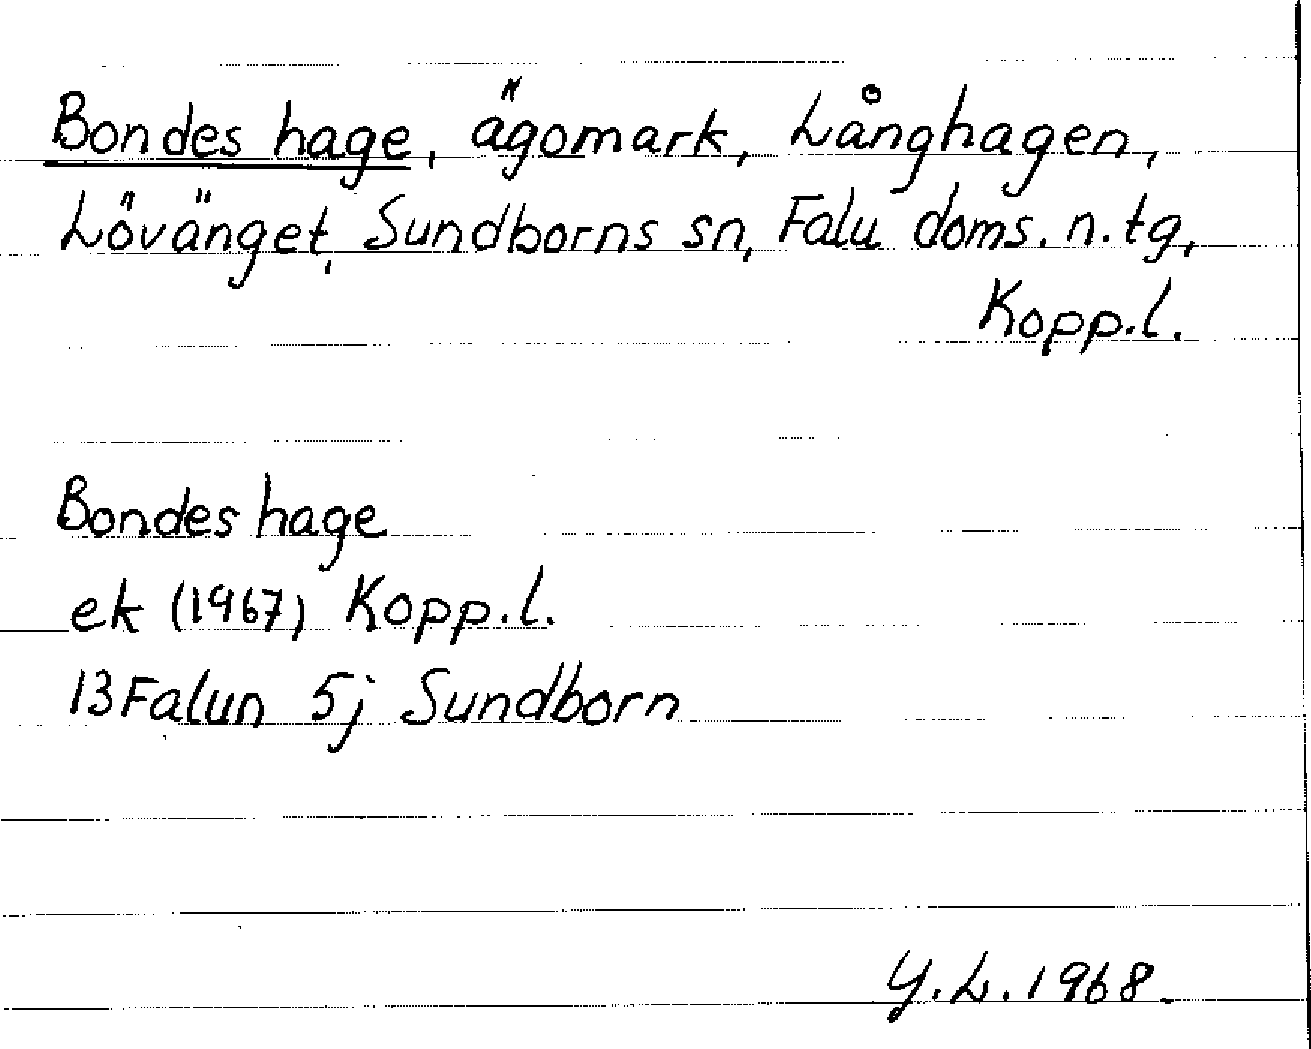 Bondes hage, ägomark, Långhagen,
Lövänget, Sundborns sn, Falu doms. n. tg,
Kopp.l.
Bondes hage
ek (1967) Kopp.l.
13 Falun 5j Sundborn
Y.L. 1968.